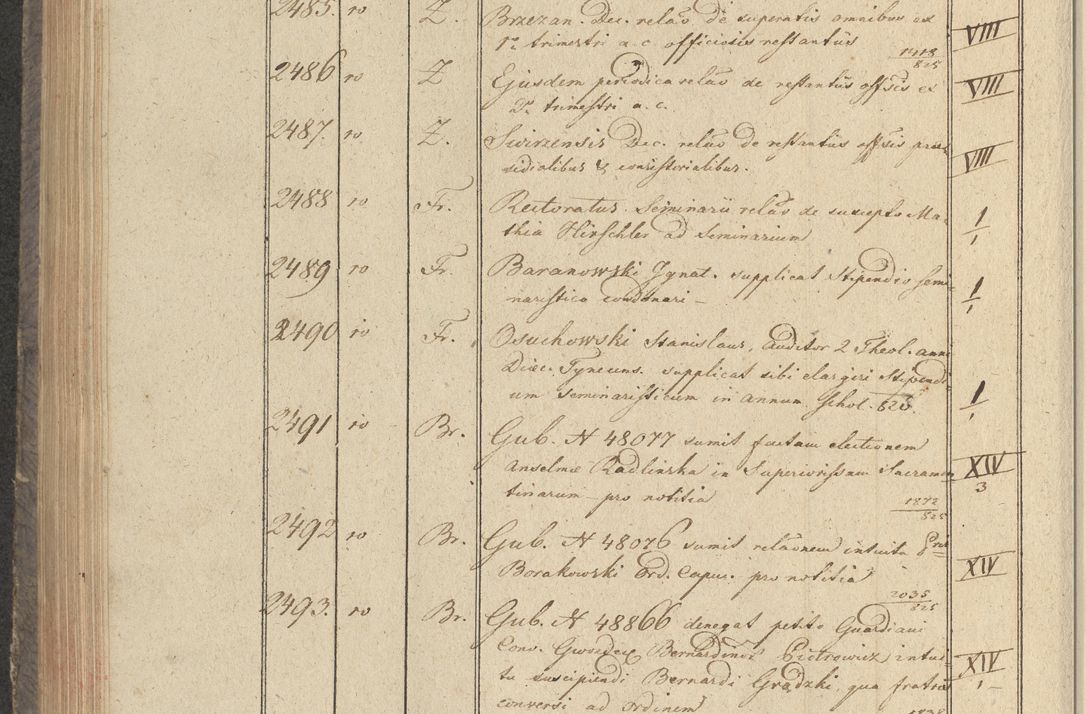 2485. 10 Z. Brzezan. Dec. relão de superatis omnibus ex VIII
1o trimestri a. c. officiosis restantiis 1418/825
2486 10 Z Ejusdem periodica relão de restantiis offsis ex VIII
2o trimestri a. c.
2487. 10 Z. Swirzensis Dec. relão de restantiis offsis prae= VIII
sidialibus & consistorialibus.
2488 10 Fr. Rectoratus Seminarii relão de suscepto Ma= 1/1
thia Hirschler ad Seminarium
2489 10 Fr. Baranowski Ignat. supplicat Stipendio Semi= 1/1
naristico condonari –
2490 10 Fr. Osuchowski Stanislaus, Auditor 2 Theol. anni
Dioec. Tynecens. supplicat sibi elargiri Stipendi=
um Seminaristicum in annum schol. 825. 1/1
2491 10 Br. Gub. N 48077 sumit factam electionem
Anselmae Radlinska in Superiorissam Sacramen= XIV/3
tinarum – pro notitia 1872/825
2492 10 Br. Gub. N 48076 sumit relaonem intuitu
Borakowski Ord. Capuc. pro notitia XIV
2035/825
2493. 10 Br. Gub. N 48866 denegat petito Guardiani
Conv. Bernardinor Piotrowicz intui= XIV/1
tu suscipiendi Bernardi Gradzki, qua fratris
conversi ad Ordinem